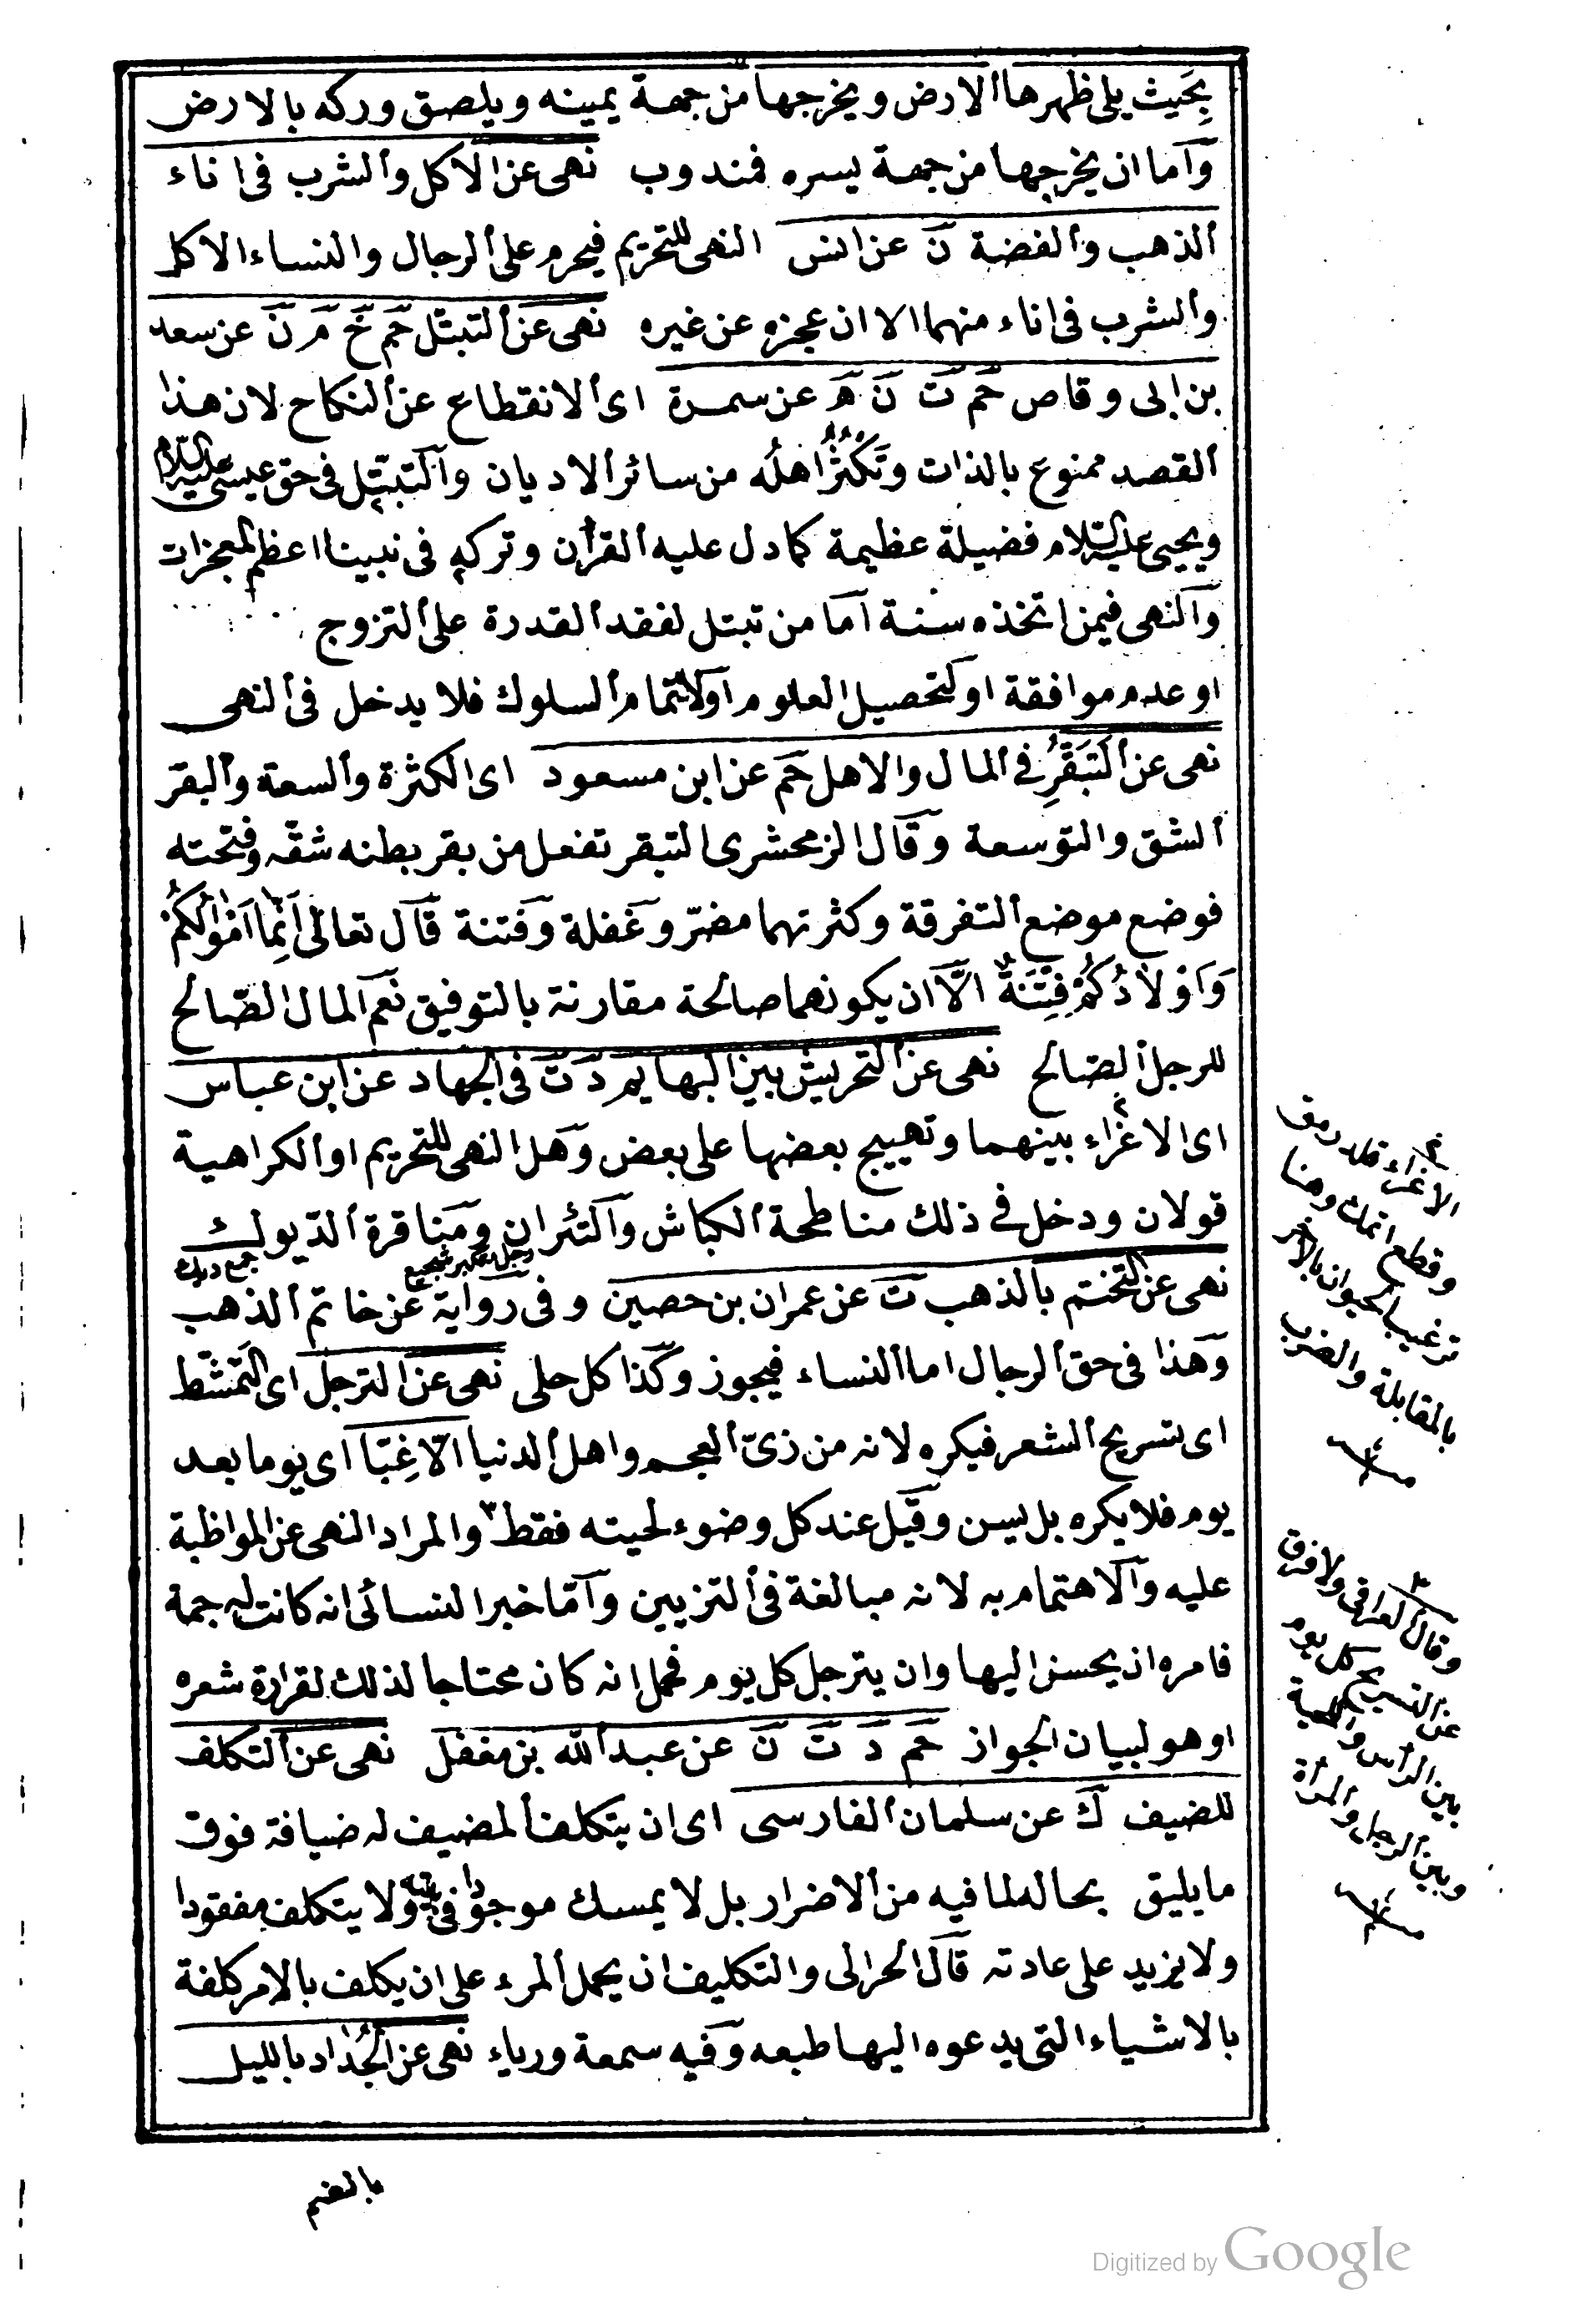 بِحَيث يلى ظهرها الارض ويخرجها من جهة يمينه ويلصق وركه بالارض
وآما ان يخرجها من جهة يسره فمندوب نهى عن الاكل والشرب فى اناء
الذهب والفضة نَ عن انس النهى للتحريم فيحرم على الرجال والنساء الاكل
والشرب فى اناء منهما الا ان عجزه عن غيره نهى عن التبتّل حَم خَ مَ نَ عن سعد
بن ابى وقاص حَم تَ نَ هَ عن سمرة اى الانقطاع عن النكاح لان هذا
القصد ممنوع بالذات وتَكثُّرُ اهلُه من سائر الاديان والتبتّل فى حق عيسى عليه السلام
ويحيى عليه السلام فضيلة عظيمة كما دل عليه القرأن وتركه فى نبينا اعظم المعجزات
وآلنهى فيمن اتخذه سنة آما من تبتل لفقد القدرة على التزوج
او عدم موافقة او لتحصيل العلوم او لاتمام السلوك فلا يدخل فى النهى
نهى عن التَبَقُّرِ فى المال والاهل حَم عن ابن مسعود اى الكثرة والسعة والبقر
الشق والتوسعة وقال الزمحشرى التبقر تفعل من بقر بطنه شقّه وفتحته
فوضع موضع التفرقة وكثرتهما مضرّ وغفلة وفتنة قال تعالى اَنَّما اَمْوالُكُمْ
وَاَوْلَادُكُمْ فِتْنَةٌ الّا ان يكونهما صالحة مقارنة بالتوفيق نعم المال الصّالح
للرجل الصّالح نهى عن التحريش بين البهايم دَ تَ فى الجهاد عن ابن عباس
اى الاغراء بينهما وتهييج بعضها على بعض وهل النهى للتحريم او الكراهية
قولان ودخل فى ذلك مناطحة الكباش والتئران ومناقرة الديوك
جمع ديك
نهى عن التختم بالذهب تَ عن عمران بن حصين وفى رواية عن خاتم الذهب
وهذا فى حق الرجال اما النساء فيجوز وكذا كل حلى نهى عن الترجل اى التمشّط
اى تسريح الشعر فيكره لانه من زىّ العجم واهل الدنيا الّا غِبّا اى يوما بعد
يوم فلا يكره بل يسن وقيل عند كل وضوء لحيته فقط والمراد النهى عن المواظبة
عليه وآلاهتمام به لانه مبالغة فى التزيين وآمّا خبر النسائى انه كانت له جمة
فامره ان يحسن اليها وان يترجل كل يوم فحمل انه كان محتاجا لذلك لقرارة شعره
او هو لبيان الجواز حَم دَ تَ نَ عن عبد الله بن مغفل نهى عن التكلف
للضيف كَ عن سلمان الفارسى اى ان يتكلف المضيف له ضيافة فوق
ما يليق بحاله لما فيه من الاضرار بل لا يمسك موجودا فى بيته ولا يتكلف مفقودا
ولا يزيد على عادته قال الحرالى والتكليف ان يحمل المرء على ان يكلف بالامر كلفة
بالاشياء التى يدعوه اليها طبعه وفيه سمعة ورياء نهى عن الجُداد بالليل
بالغنم
وقطع اتمك وهنا
ترغيب الحيوان بالاخر
بالمقابلة والضرب
وقال العراقى ولا فرق
عن التسريح كل يوم
بين الرأس واللحية
وبين الرجل والمرأة
Digitized by Google